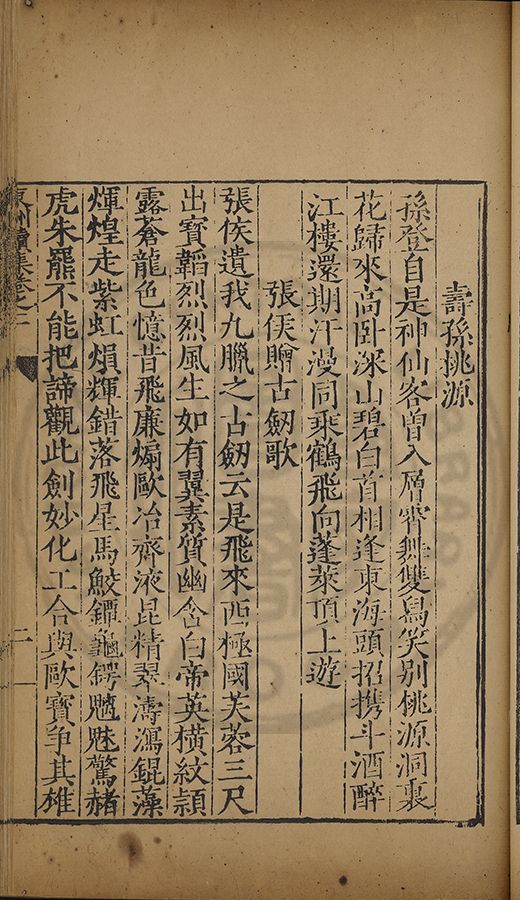 壽孫桃源
孫登自是神仙客曾入層霄舞雙舄笑別桃源洞裏
花歸來高卧深山碧白首相逢東海頭招携斗酒醉
江樓還期汗漫同乘鶴飛向蓬萊頂上遊
張侯贈古劒歌
張侯遺我九臘之古劒云是飛來西極國芙蓉三尺
出寳韜烈烈風生如有翼素質幽含白帝英橫紋頴
露蒼龍色憶昔飛廉煽歐冶齊液昆精翠濤瀉錕藻
煇煌走紫虹熉輝錯落飛星馬鮫鐔龜鍔魑魅驚赭
虎朱羆不能把諦觀此劍妙化工合與歐寳爭其雄
續集卷之二
二